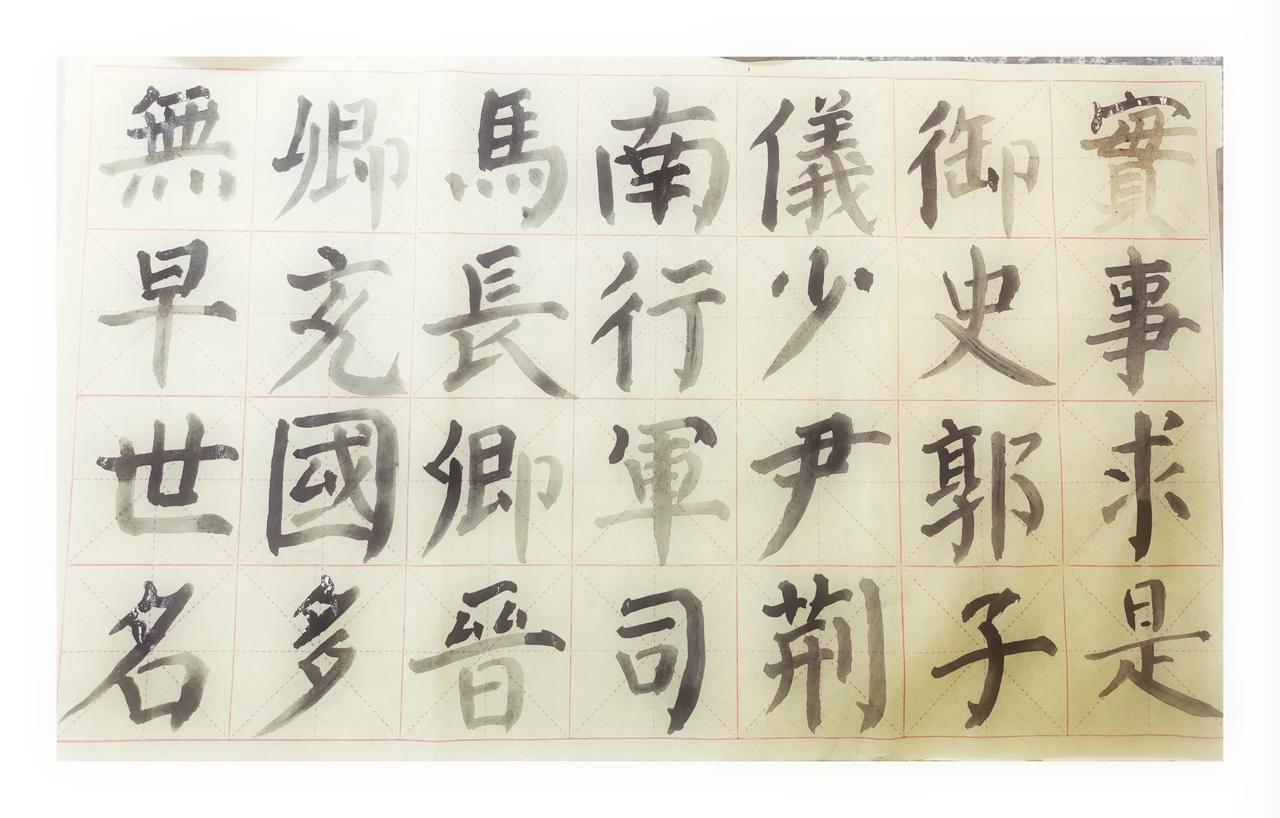 實事求是
御史郭子
儀少尹荆
南行軍司
馬長卿晉
卿充國多
無早世名